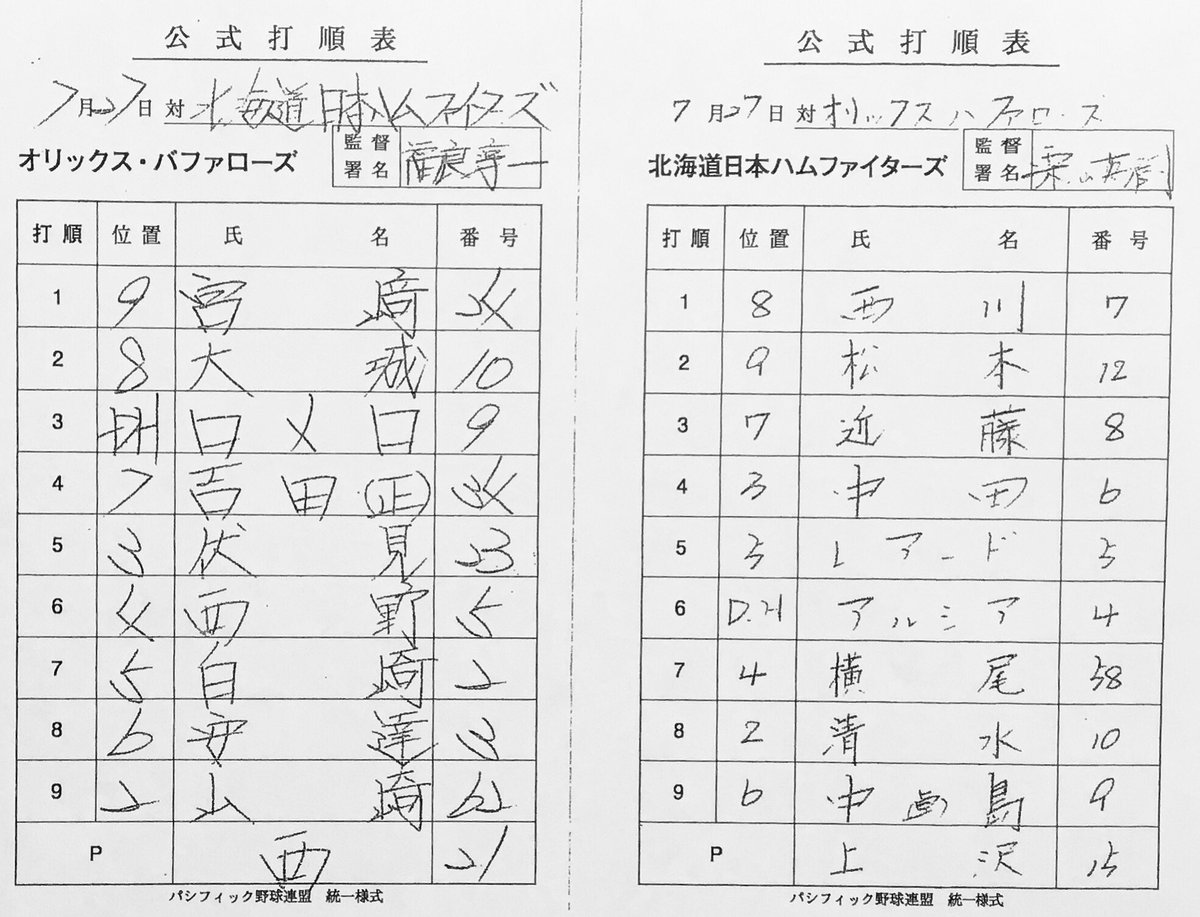 公式打順表
7月27日対北海道日本ハムファイターズ
オリックス・バファローズ 監督署名 福良淳一
打順 位置 氏名 番号
1 9 宮﨑
2 8 大城 10
3 DH ロメロ 9
4 7 吉田(正) 34
5 3 伏見 23
6 4 西野 5
7 5 白崎 2
8 6 安達 3
9 2 山崎
P 西 21
パシフィック野球連盟 統一様式
公式打順表
7月27日対オリックスバファローズ
北海道日本ハムファイターズ 監督署名 栗山英樹
打順 位置 氏名 番号
1 8 西川 7
2 9 松本 12
3 7 近藤 8
4 3 中田 6
5 5 レアード 5
6 D.H アルシア 4
7 4 横尾 58
8 2 清水 10
9 6 中島 9
P 上沢 15
パシフィック野球連盟 統一様式